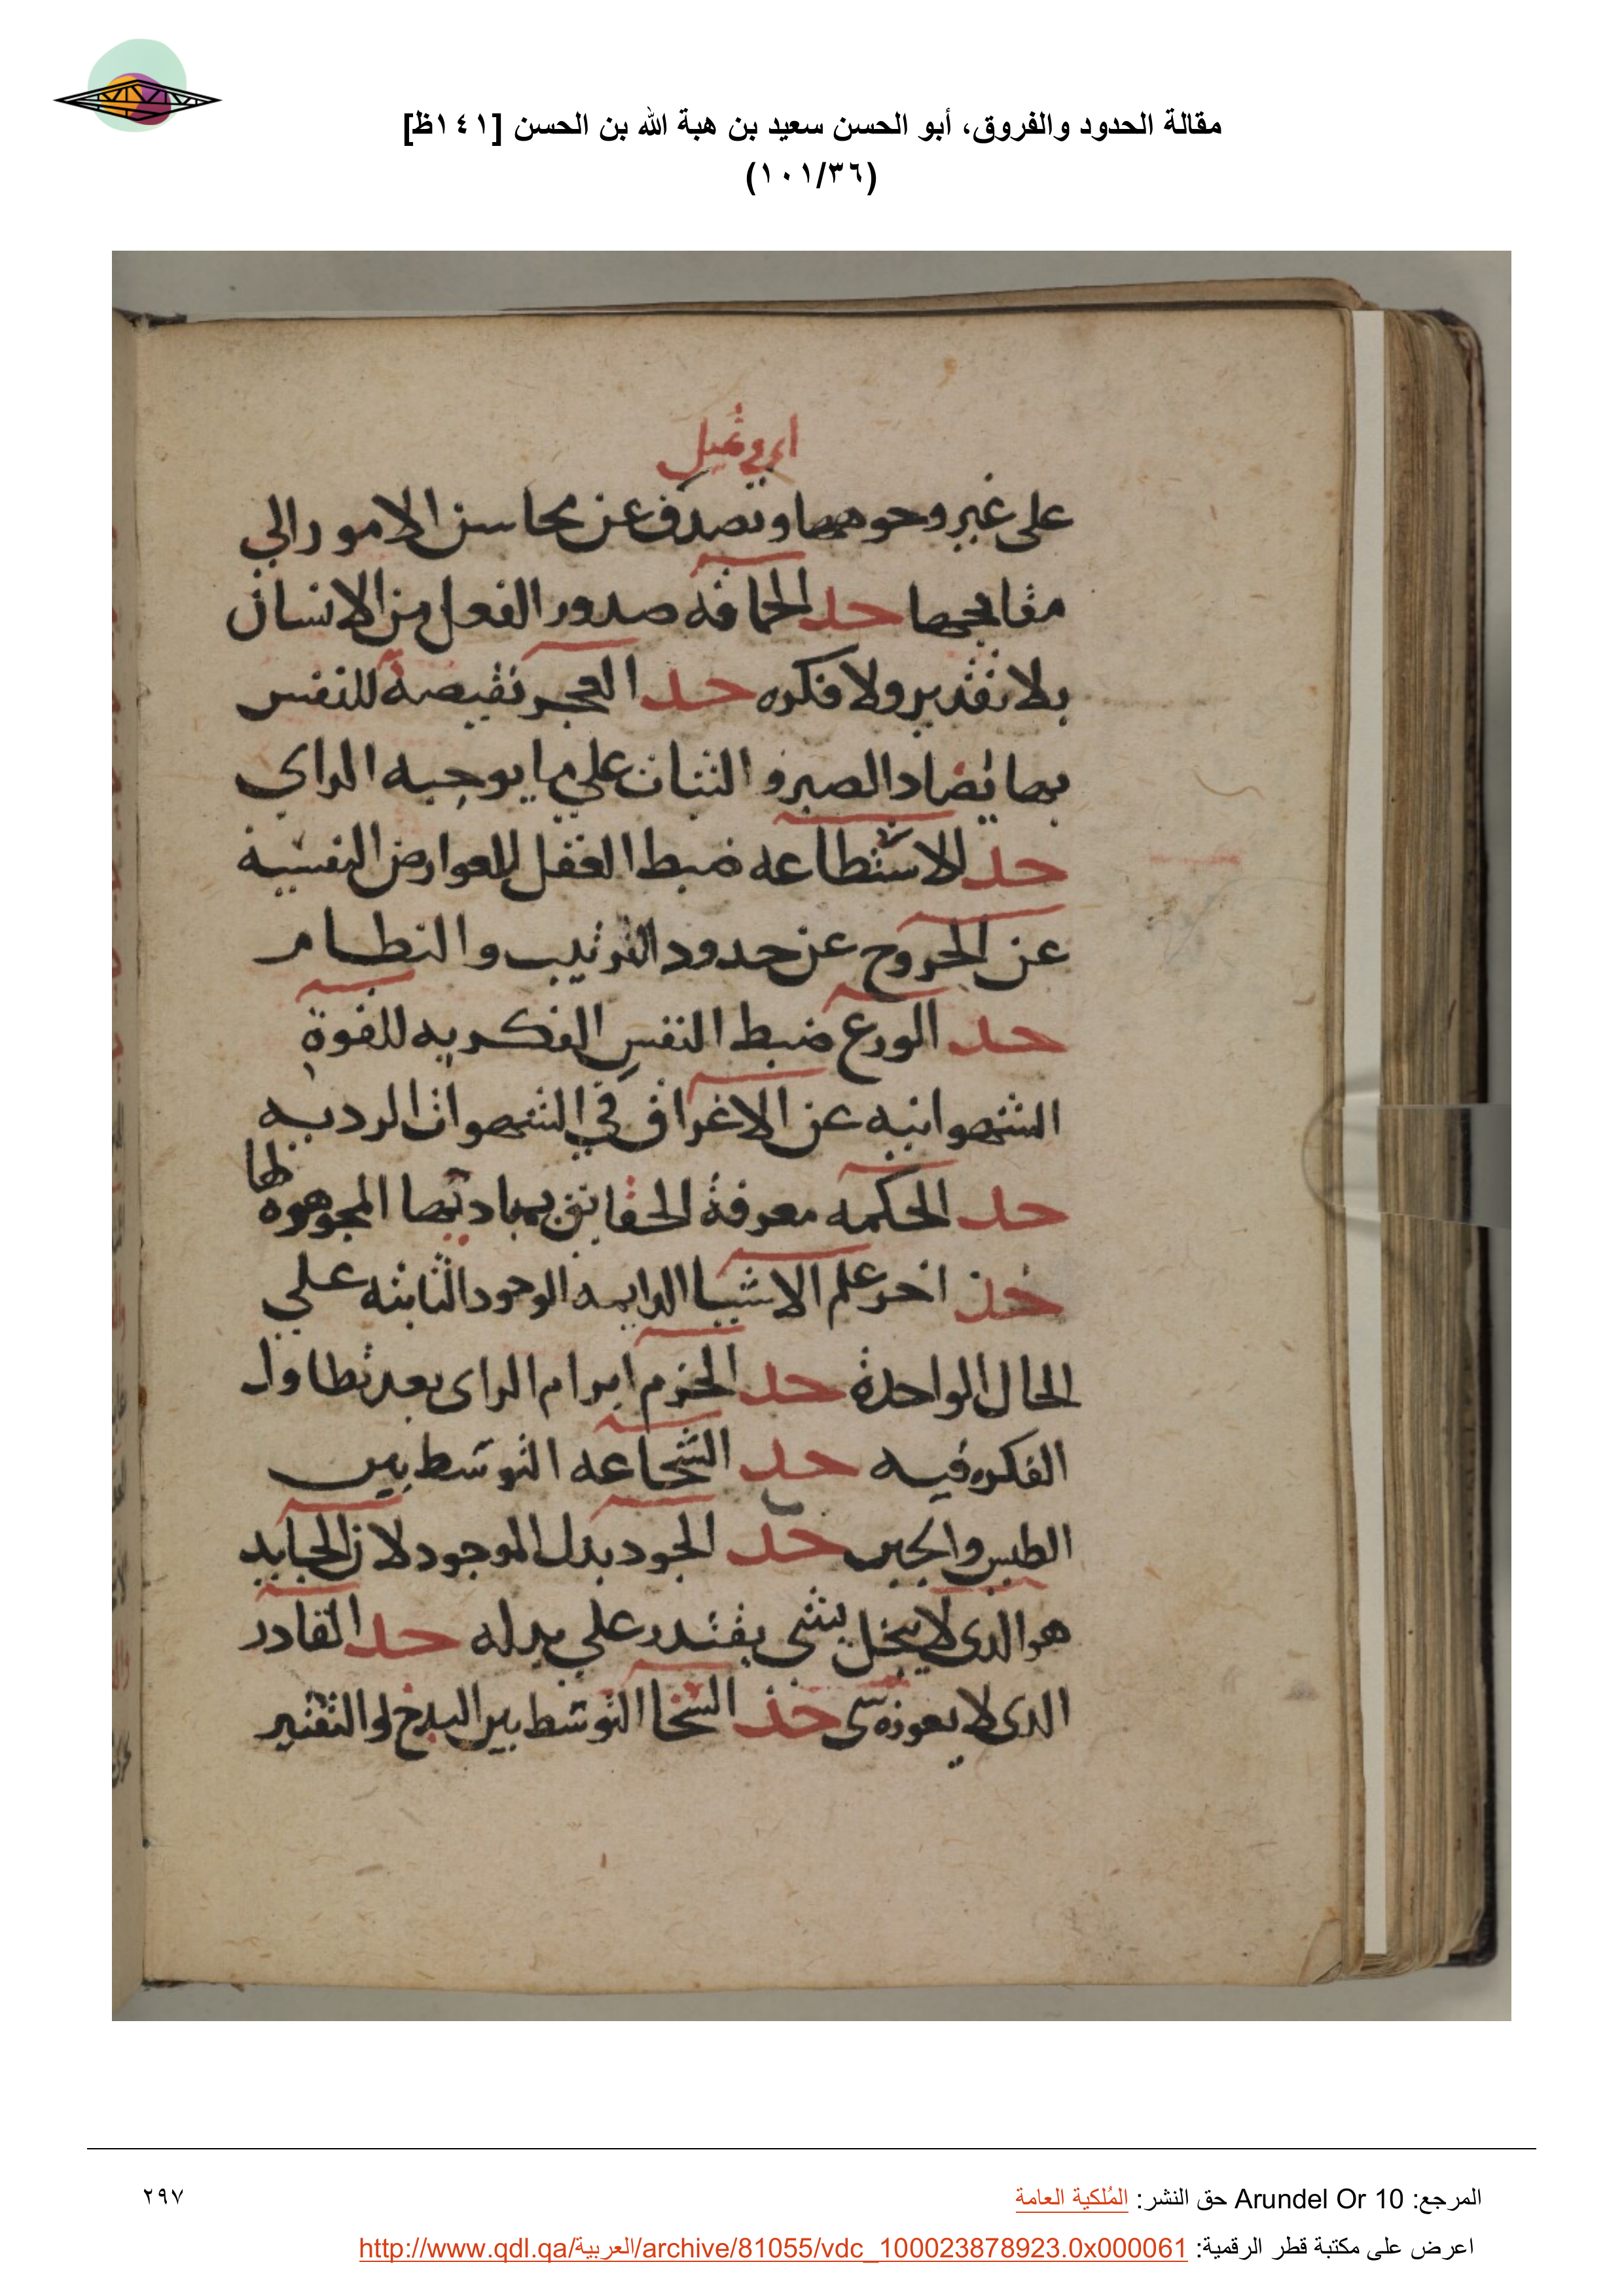 مقالة الحدود والفروق، أبو الحسن سعيد بن هبة الله بن الحسن [١٤١ظ]
(١٠١/٣٦)
اي في تميل
على غير وجوهها وتصدف عن محاسن الامور الي
مقابحها حد الحماقه صدور الفعل من الانسان
بلا تقدير ولا فكره حد العجز نقيصة للنفس
بها يضاد الصبر و الثبات علي ما يوجبه الراي
حد الاستطاعه ضبط العقل للعوارض النفسية
عن الخروج عن حدود الترتيب و النظام
حد الورع ضبط النفس الفكريه للقوة
الشهوانيه عن الاغراق في الشهوات الرديه
حد الحكمه معرفة الحقايق بمباديها المجوهره لها
حد اخر علم الاشيا الدايمه الوجود الثابته علي
الحال الواحدة حد الحزم ابرام الراى بعد تطاول
الفكره فيه حد الشجاعه التوسط بين
الطيش والجبن حد الجود بذل الموجود لان
هو الذي لا يبخل بشي يقتدر علي بذله حد القادر
الذي لا يعوزه شي حد السخا التوسط بين البذخ والتقتير
المرجع: Arundel Or 10 حق النشر: المُلكية العامة
٢٩٧
اعرض على مكتبة قطر الرقمية: http://www.qdl.qa/العربية/archive/81055/vdc_100023878923.0x000061